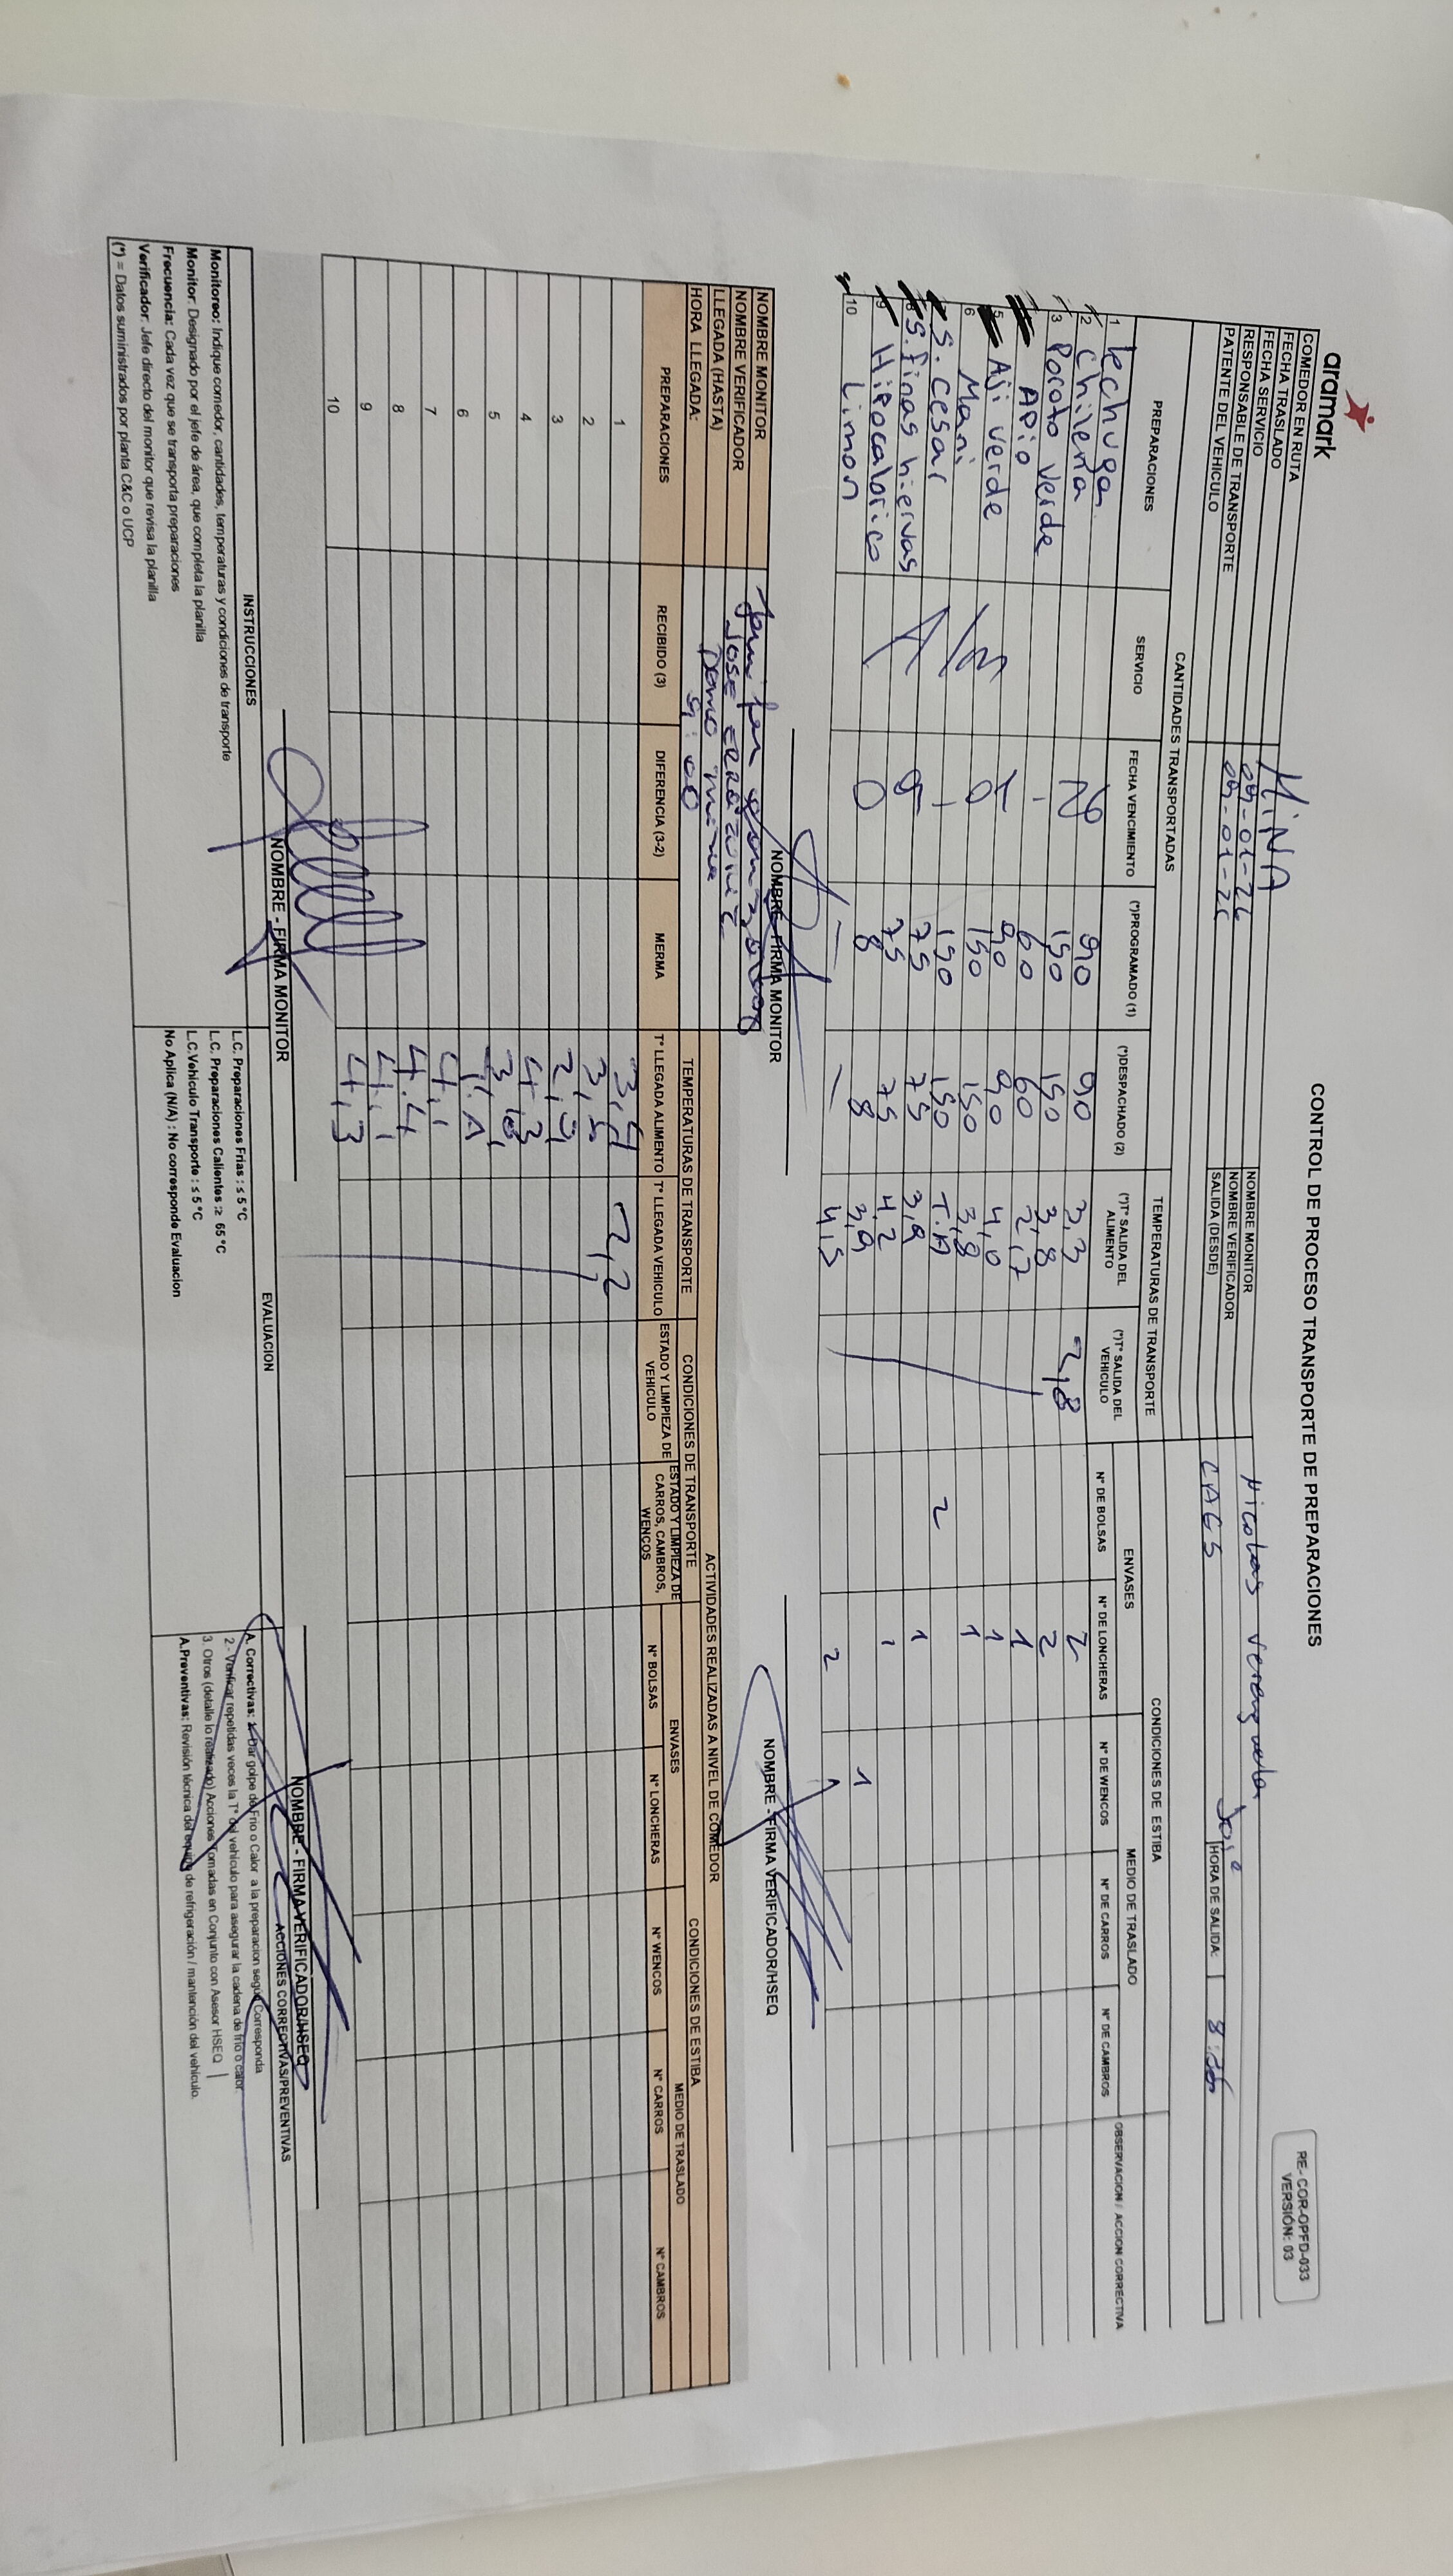 aramark
CONTROL DE PROCESO TRANSPORTE DE PREPARACIONES
RE- COR-OPFD-033
VERSIÓN: 03
COMEDOR EN RUTA MINA
FECHA TRASLADO 09-01-26
FECHA SERVICIO 09-01-26
RESPONSABLE DE TRANSPORTE
PATENTE DEL VEHICULO
NOMBRE MONITOR Nicolas
NOMBRE VERIFICADOR José
SALIDA (DESDE) CAGS
HORA DE SALIDA:
CANTIDADES TRANSPORTADAS TEMPERATURAS DE TRANSPORTE CONDICIONES DE ESTIBA
ENVASES MEDIO DE TRASLADO
PREPARACIONES SERVICIO FECHA VENCIMIENTO (*)PROGRAMADO (1) (*)DESPACHADO (2) (*)Tº SALIDA DEL ALIMENTO (*)Tº SALIDA DEL VEHICULO Nº DE BOLSAS Nº DE LONCHERAS Nº DE WENCOS Nº DE CARROS Nº DE CAMBROS OBSERVACION / ACCION CORRECTIVA
1 lechuga 90 90 3,3 2,8 2
2 chilena 150 150 3,8 2
3 Poroto verde 60 60 2,7 1
APio 90 90 4,0 1
5 Aji verde 150 150 3,8 1
6 Mani 150 150 T.A 2
S. Cesar 75 75 3,9 1
8 S. finas hiervas 75 75 4,2 1
9 Hipocalorico 8 8 3,9 1
10 Limon 4,5 2
NOMBRE - FIRMA MONITOR
NOMBRE - FIRMA VERIFICADOR/HSEQ
NOMBRE MONITOR
NOMBRE VERIFICADOR JOSE
LLEGADA (HASTA) Domo mina
HORA LLEGADA: 9:00
ACTIVIDADES REALIZADAS A NIVEL DE COMEDOR
TEMPERATURAS DE TRANSPORTE CONDICIONES DE TRANSPORTE CONDICIONES DE ESTIBA
ENVASES MEDIO DE TRASLADO
PREPARACIONES RECIBIDO (3) DIFERENCIA (3-2) MERMA Tº LLEGADA ALIMENTO Tº LLEGADA VEHICULO ESTADO Y LIMPIEZA DE VEHICULO ESTADO Y LIMPIEZA DE CARROS, CAMBROS, WENCOS Nº BOLSAS Nº LONCHERAS Nº WENCOS Nº CARROS Nº CAMBROS
1 3,4 2,2
2
3 2,9
4 4,3
5
6 T.A
7 4,1
8 4.4
9 4,1
10 4,3
NOMBRE - FIRMA MONITOR
NOMBRE - FIRMA VERIFICADOR/HSEQ
INSTRUCCIONES
Monitoreo: Indique comedor, cantidades, temperaturas y condiciones de transporte
Monitor: Designado por el jefe de área, que completa la planilla
Frecuencia: Cada vez que se transporta preparaciones
Verificador: Jefe directo del monitor que revisa la planilla
(*) = Datos suministrados por planta C&C o UCP
EVALUACION
L.C. Preparaciones Frías : ≤ 5 ºC
L.C. Preparaciones Calientes :≥ 65 ºC
L.C.Vehículo Transporte : ≤ 5 ºC
No Aplica (N/A) : No corresponde Evaluacion
ACCIONES CORRECTIVAS/PREVENTIVAS
A. Correctivas: 1- Dar golpe de Frio o Calor a la preparacion según Corresponda
2.- Verificar repetidas veces la Tº del vehículo para asegurar la cadena de frío o calor
3. Otros (detalle lo realizado) Acciones Tomadas en Conjunto con Asesor HSEQ
A.Preventivas: Revisión técnica del equipo de refrigeración / mantención del vehículo.